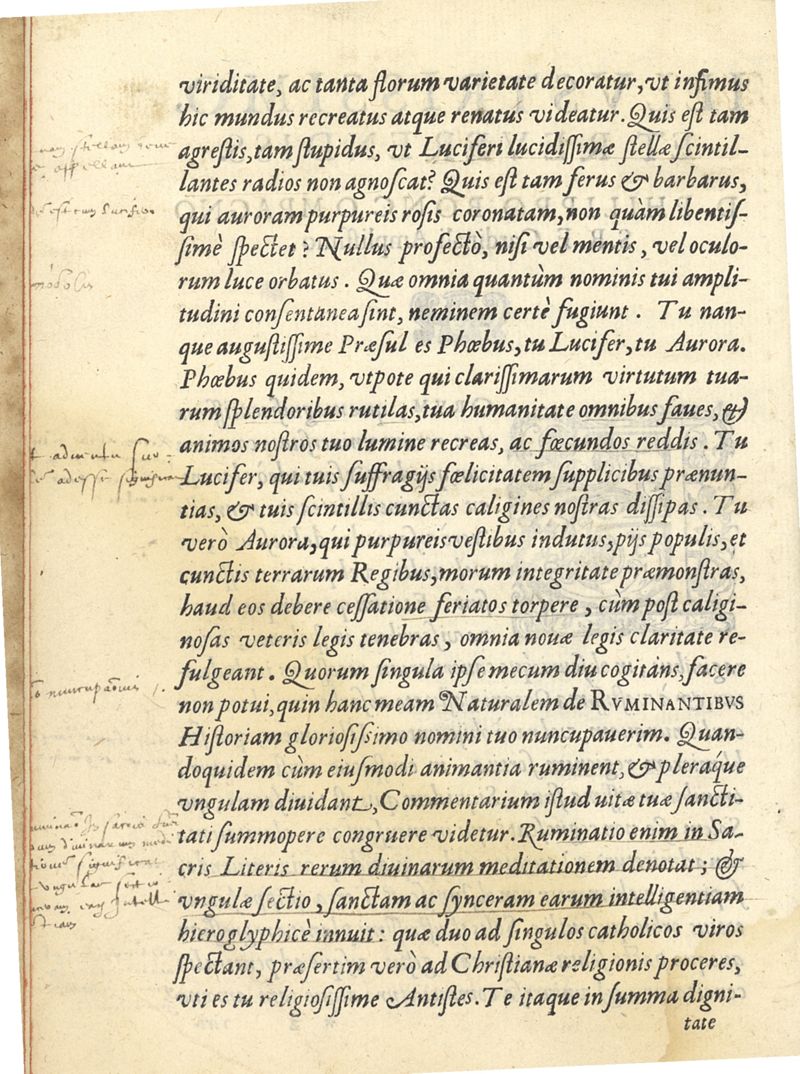 viriditate, ac tanta florum varietate decoratur, vt infimus
hic mundus recreatus atque renatus videatur. Quis est tam
agrestis, tam stupidus, vt Luciferi lucidissimæ stellæ scintil-
lantes radios non agnoscat? Quis est tam ferus & barbarus,
qui auroram purpureis rosis coronatam, non quàm libentis-
simè spectet? Nullus profectò, nisi vel mentis, vel oculo-
rum luce orbatus. Quæ omnia quantùm nominis tui ampli-
tudini consentanea sint, neminem certè fugiunt. Tu nan-
que augustissime Præsul es Phœbus, tu Lucifer, tu Aurora.
Phœbus quidem, vtpote qui clarissimarum virtutum tua-
rum splendoribus rutilas, tua humanitate omnibus faues, &
animos nostros tuo lumine recreas, ac fœcundos reddis. Tu
Lucifer, qui tuis suffragijs fœlicitatem supplicibus prænun-
tias, & tuis scintillis cunctas caligines nostras dissipas. Tu
verò Aurora, qui purpureis vestibus indutus, pijs populis, et
cunctis terrarum Regibus, morum integritate præmonstras,
haud eos debere cessatione feriatos torpere, cùm post caligi-
nosas veteris legis tenebras, omnia nouæ legis claritate re-
fulgeant. Quorum singula ipse mecum diu cogitans, facere
non potui, quin hanc meam Naturalem de RVMINANTIBVS
Historiam gloriosissimo nomini tuo nuncupauerim. Quan-
doquidem cùm eiusmodi animantia ruminent, & pleraque
vngulam diuidant, Commentarium istud uitæ tuæ sancti-
tati summopere congruere videtur. Ruminatio enim in Sa-
cris Literis rerum diuinarum meditationem denotat; &
vngulæ sectio, sanctam ac synceram earum intelligentiam
hieroglyphicè innuit: quæ duo ad singulos catholicos viros
spectant, præsertim verò ad Christianæ religionis proceres,
vti es tu religiosissime Antistes. Te itaque in summa digni-
tate